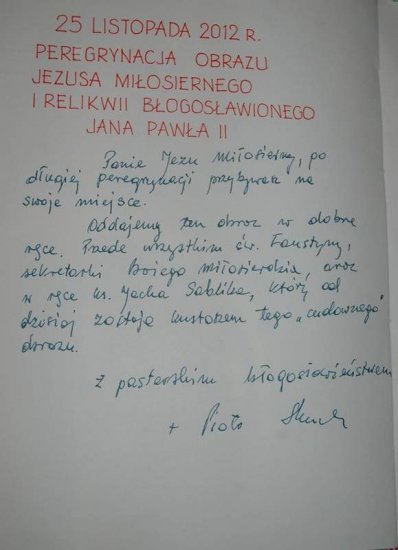 25 LISTOPADA 2012 R.
PEREGRYNACJA OBRAZU
JEZUSA MIŁOSIERNEGO
I RELIKWII BŁOGOSŁAWIONEGO
JANA PAWŁA II
Panie Jezu Miłosierny, po
długiej peregrynacji przybywasz na
swoje miejsce.
Oddajemy ten obraz w dobre
ręce. Przede wszystkim św. Faustyny,
sekretarki Bożego Miłosierdzia, oraz
w ręce ks. Jacka Sablika, który od
dzisiaj zostaje kustoszem tego "cudownego"
obrazu.
Z pasterskim błogosławieństwem
+ Piotr